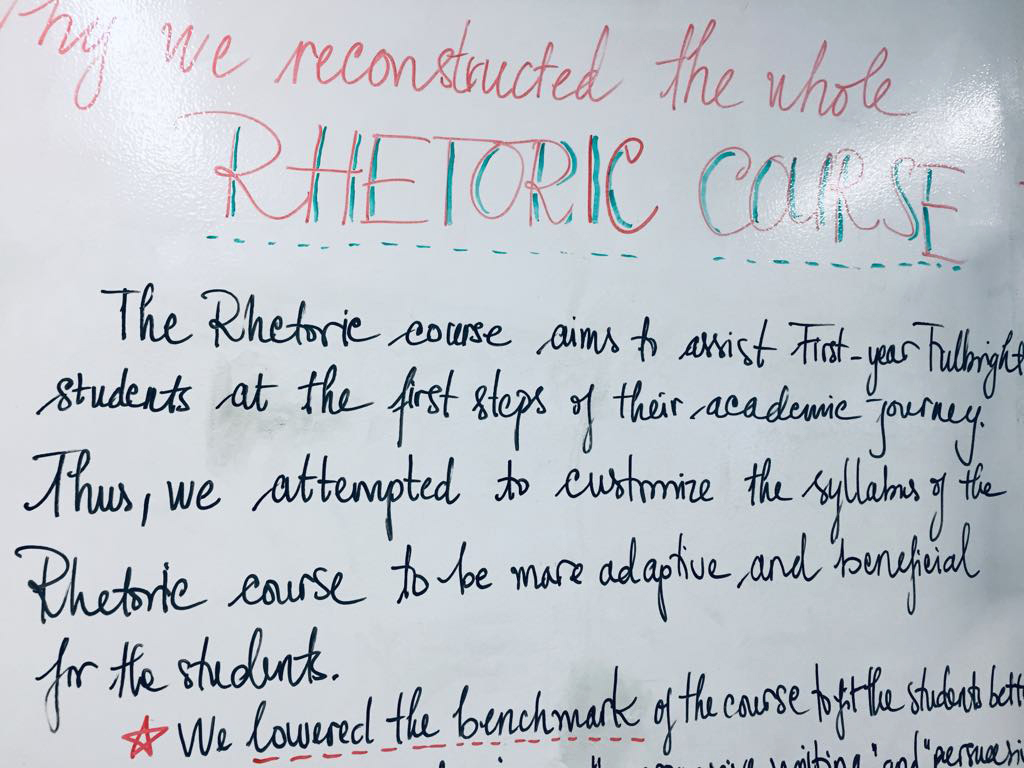 Why we reconstructed the whole
RHETORIC COURSE
The Rhetoric course aims to assist First-year Fulbright
students at the first steps of their academic journey.
Thus, we attempted to customize the syllabus of the
Rhetoric course to be more adaptive and beneficial
for the students.
We lowered the benchmark of the course to fit the students bett
writing" and "persuasi